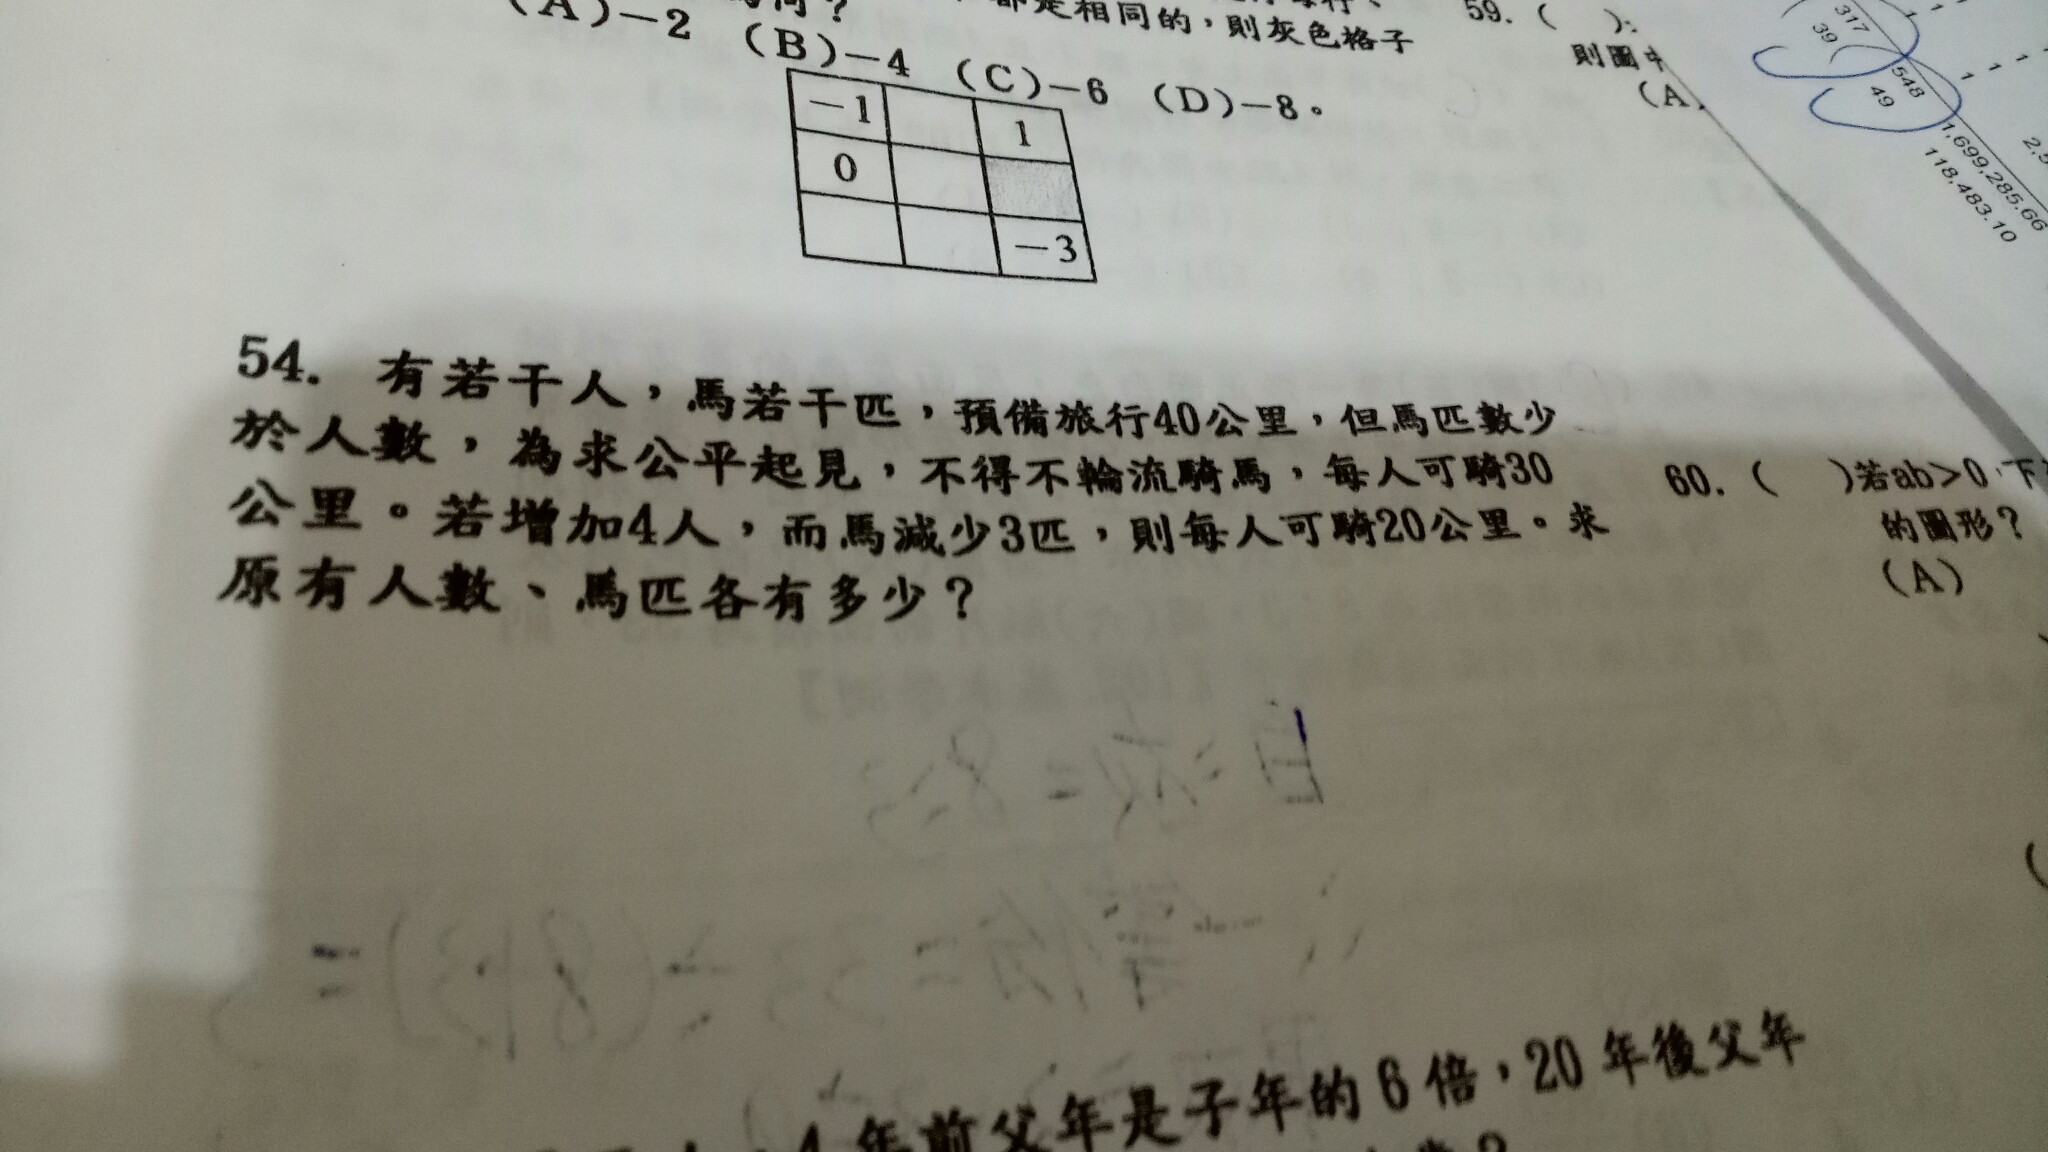 都是相同的，則灰色格子
(A)－2 (B)－4 (C)－6 (D)－8。
－1 1
0
－3
54. 有若干人，馬若干匹，預備旅行40公里，但馬匹數少
於人數，為求公平起見，不得不輪流騎馬，每人可騎30
公里。若增加4人，而馬減少3匹，則每人可騎20公里。求
原有人數、馬匹各有多少？
4 年前父年是子年的 6 倍，20 年後父年
59. ( ):
則圖中
(A
60. ( )若ab>0，下
的圖形？
(A)
317
39
548
49
1,699,285.66
118,483.10